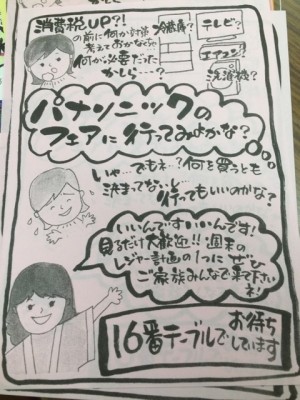 消費税UP?!
の前に何か対策
考えておかなくちゃ
何が必要だった
かしら…?
冷蔵庫?
テレビ?
エアコン?
洗濯機?
パナソニックの
フェアに行ってみよかな?
いゃ…でもネ…?何を買うとも
決まってないし…
行ってもいいのかな?
いいんですいいんです!
見るだけ大歓迎!!週末の
レジャー計画の1つにぜひ
ご家族みんなで来て下さい
ネ!
16番テーブルで
お待ち
しています